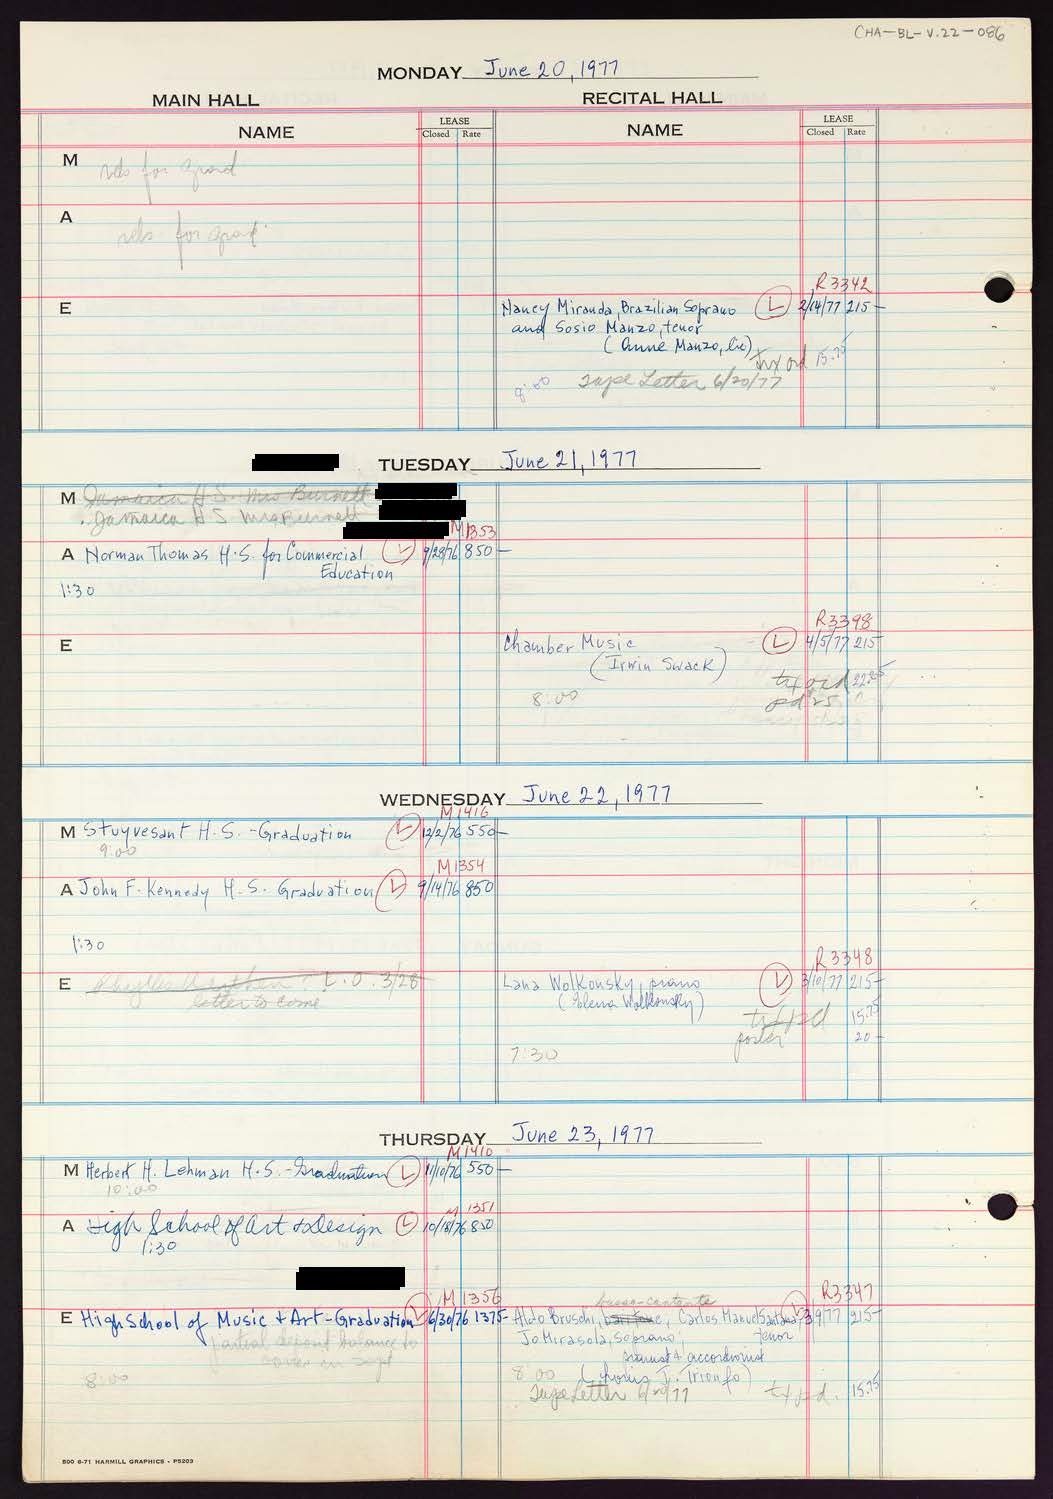 CHA-BL-V.22-086
MONDAY June 20, 1977
MAIN HALL RECITAL HALL
NAME LEASE Closed Rate NAME LEASE Closed Rate
M for grad
A for grad
R3342
E Nancy Miranda, Brazilian Soprano L 2/14/77 215-
and Sosio Manzo, tenor
(Anne Manzo, lic)
tix ord 15.75
8:00 Tape Letter 6/20/77
TUESDAY June 21, 1977
M Jamaica H S. Mrs Burnett
Jamaica H S Mrs Burnett
M1353
A Norman Thomas H.S. for Commercial L 9/28/76 850-
Education
1:30
R3398
E Chamber Music - L 4/5/77 215-
(Irwin Swack)
tix ord 22.25
8:00 pd 25
WEDNESDAY June 22, 1977
M1416
M Stuyvesant H.S. - Graduation L 12/2/76 550-
9:00
M1354
A John F. Kennedy H.S. Graduation L 9/14/76 850
1:30
R3348
E L.O. 3/28 Lana Wolkonsky, piano L 3/10/77 215-
letter to come (Elena Wolkonsky)
tix pd 15.75
poster 20-
7:30
THURSDAY June 23, 1977
M1410
M Herbert H. Lehman H.S. - Graduation L 11/10/76 550-
10:00
M1351
A High School of Art & Design L 10/18/76 850
1:30
M1356 R3347
basso-cantante
E High School of Music & Art-Graduation L 6/30/76 1375- Aldo Bruschi, baritone, Carlos Manuel Santana, L 3/9/77 215-
partial deposit balance to Jo Mirasola, soprano; tenor
pianist & accordionist
8:00 8:00 (Louis J. Trionfo)
Tape Letter 6/20/77 tix pd. 15.75
500 6-71 HARMILL GRAPHICS - P5203